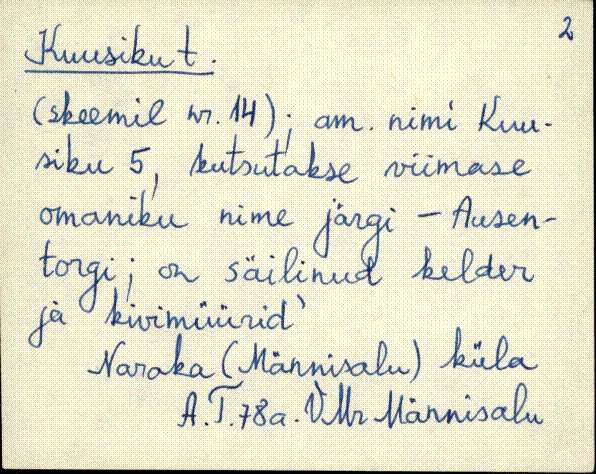 2
Kuusiku t.
(skeemil nr. 14); am. nimi Kuu-
siku 5, kutsutakse viimase
omaniku nime järgi – Ausen-
torgi; on säilinud kelder
ja kivimüürid
Naraka (Männisalu) küla
A.T. 78a. VMr Männisalu